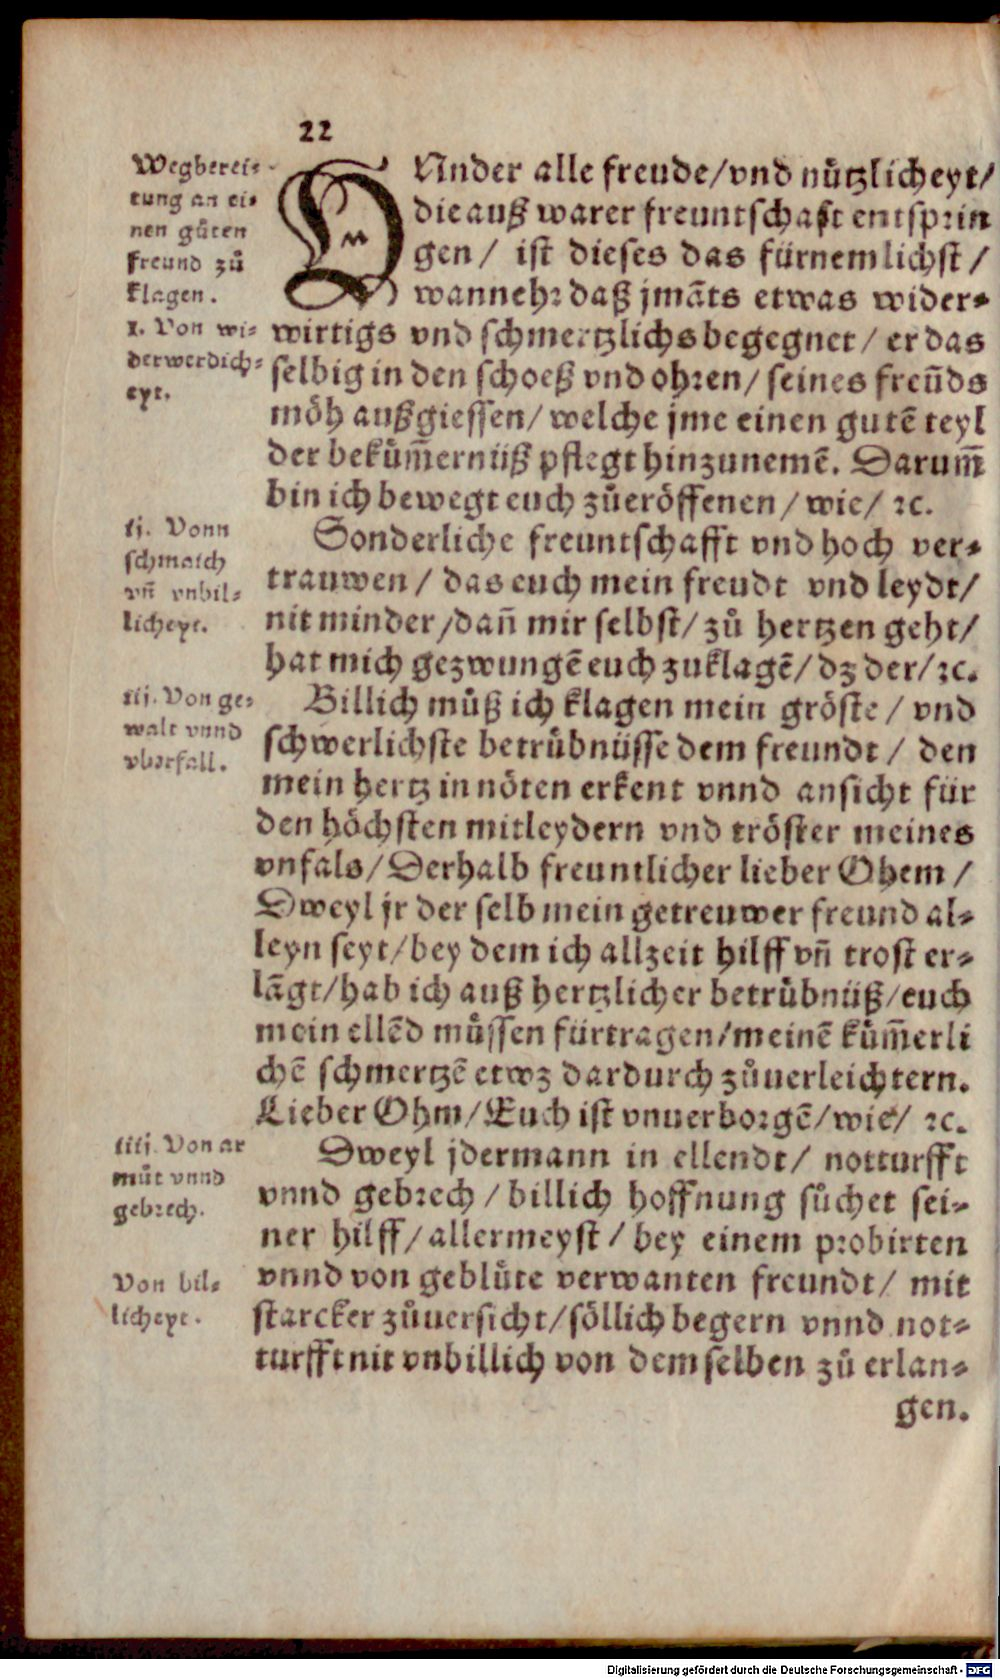 22
Wegberei⸗
tung an ei⸗
nen gůten
freund zů
klagen.
1. Von wi⸗
derwerdich⸗
eyt.
VNder alle freude/vnd nůtzlicheyt/
die auß warer freuntschafft entsprin
gen/ ist dieses das fürnemlichst/
wannehr daß jmāts etwas wider⸗
wirtigs vnd schmertzlichs begegnet/ er das
selbig in den schoeß vnd ohren/ seines freūds
möh außgiessen/ welche jme einen gutē teyl
der beküm̄ernüß pflegt hinzunemē. Darum̄
bin ich bewegt euch zůeröffenen/ wie/ ꝛc.
ij. Vonn
schmaich
vn̄ vnbil⸗
licheyt.
Sonderliche freuntschafft vnd hoch ver⸗
trauwen/ das euch mein freudt vnd leydt/
nit minder/dan̄ mir selbst/ zů hertzen geht/
hat mich gezwungē euch zuklagē/ dz der/ꝛc.
iij. Von ge⸗
walt vnnd
vberfall.
Billich můß ich klagen mein gröste/ vnd
schwerlichste betrůbnüsse dem freundt/ den
mein hertz in nöten erkent vnnd ansicht für
den höchsten mitleydern vnd tröster meines
vnfals/Derhalb freuntlicher lieber Ohem/
Dweyl jr der selb mein getreuwer freund al⸗
leyn seyt/bey dem ich allzeit hilff vn̄ trost er⸗
lāgt/hab ich auß hertzlicher betrůbnüß/euch
mein ellēd müssen fürtragen/meinē küm̄erli
chē schmertzē etwz dardurch zůuerleichtern.
Lieber Ohm/Euch ist vnuerborgē/wie/ ꝛc.
iiij. Von ar
můt vnnd
gebrech.
Dweyl jdermann in ellendt/ notturfft
vnnd gebrech/billich hoffnung sůchet sei⸗
ner hilff/allermeyst/ bey einem probirten
Von bil⸗
licheyt.
vnnd von geblůte verwanten freundt/ mit
starcker zůuersicht/söllich begern vnnd not⸗
turfft nit vnbillich von dem selben zů erlan⸗
gen.
Digitalisierung gefördert durch die Deutsche Forschungsgemeinschaft - DFG